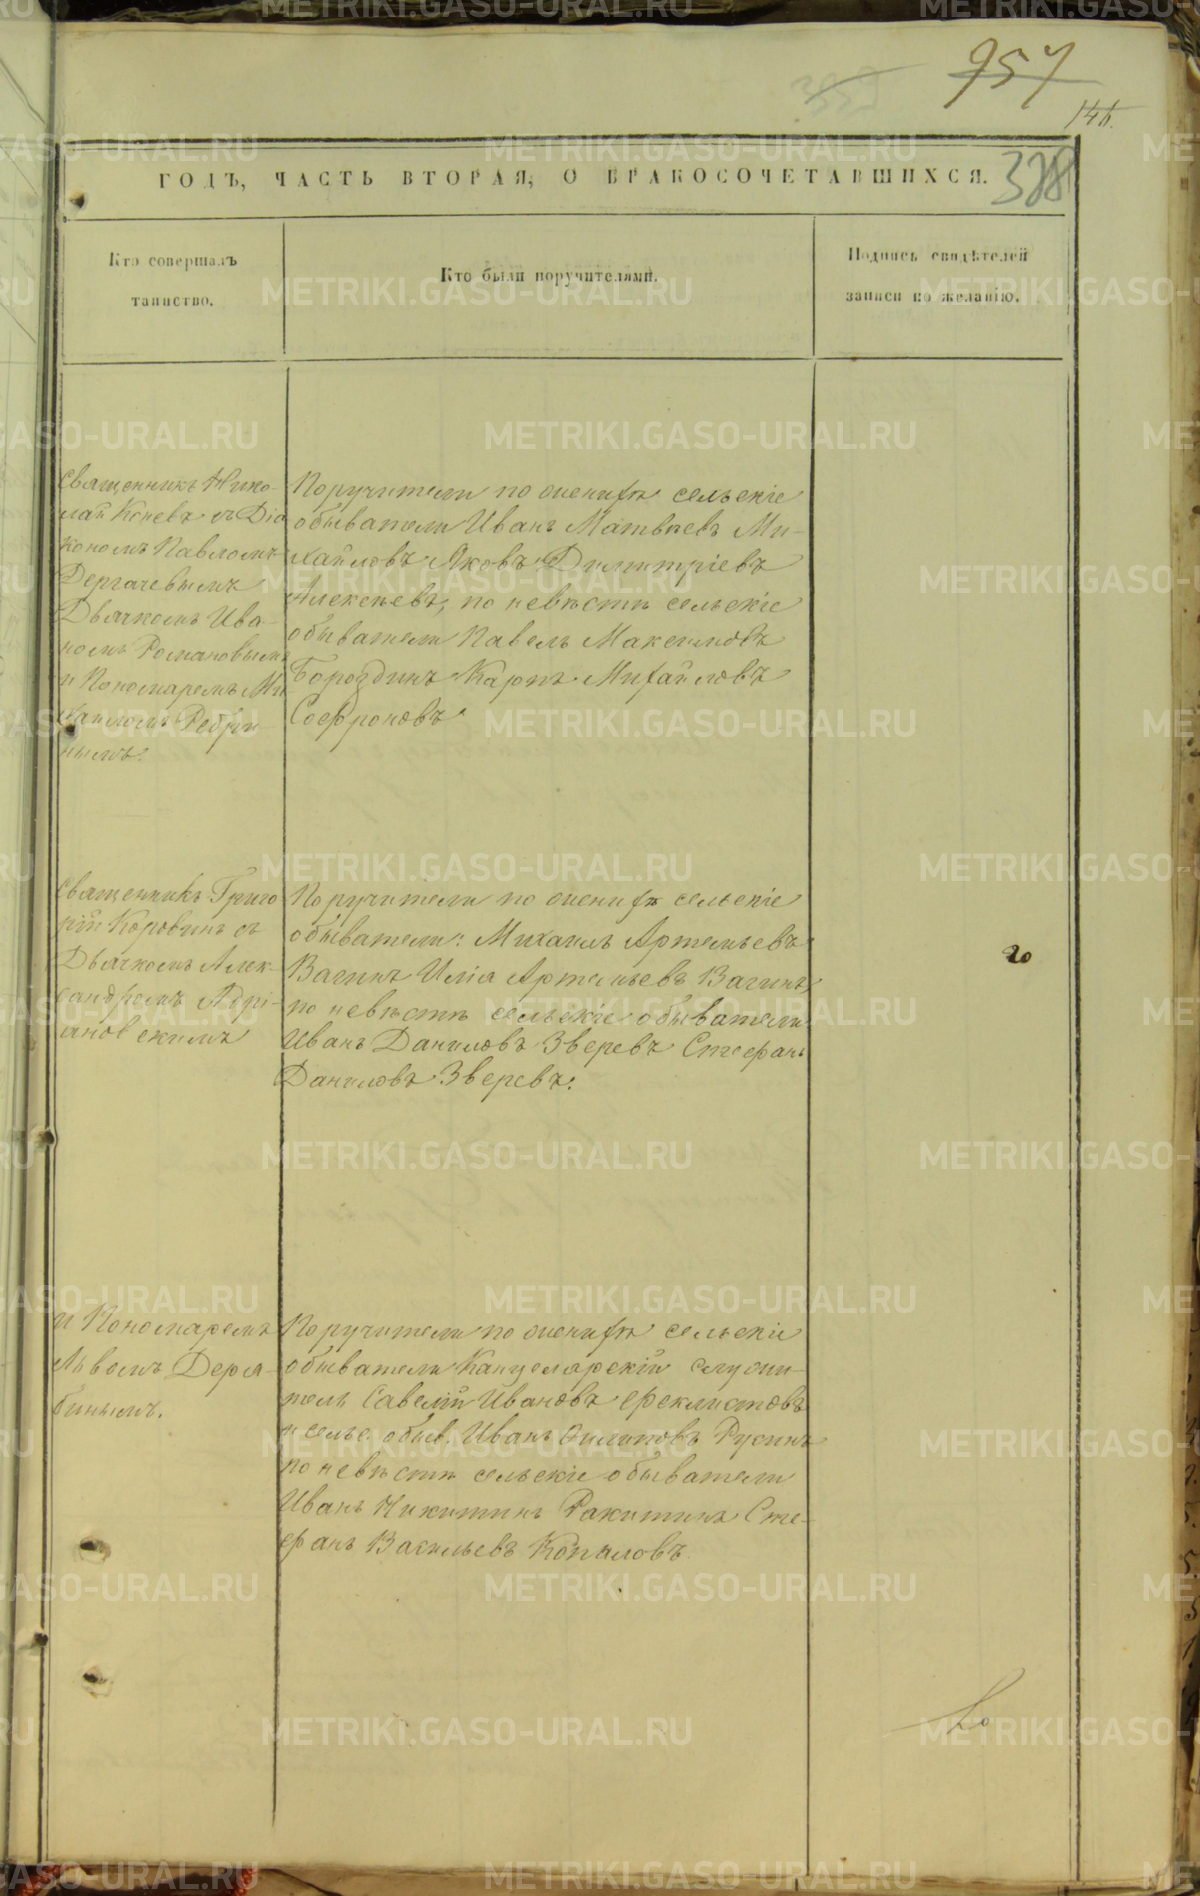 957
146.
378
ГОДЪ, ЧАСТЬ ВТОРАЯ, О БРАКОСОЧЕТАВШИХСЯ.
Кто совершалъ
таинство.
Кто были поручителями.
Подпись свидѣтелей
записи по желанію.
Священникъ Нико-
лай Коневъ съ Діа
кономъ Павломъ
Дергачевымъ
Дьячкомъ Ива-
номъ Романовымъ
и Пономаремъ Ми
хаиломъ Ребри-
нымъ.
Поручители по женихѣ сельскіе
обыватели Иванъ Матвѣевъ Ми-
хайловъ Яковъ Димитріевъ
Алексѣевъ, по невѣстѣ сельскіе
обыватели Павелъ Максимовъ
Бороздинъ Карпъ Михайловъ
Софроновъ
Священникъ Григо
рій Коровинъ съ
Дьячкомъ Алек-
сандромъ Адрі-
ановскимъ
Поручители по женихѣ сельскіе
обыватели: Михаилъ Артемьевъ
Вагинъ Илія Артемьевъ Вагинъ
по невѣстѣ сельскіе обыватели
Иванъ Даниловъ Зверевъ Стефанъ
Даниловъ Зверевъ.
20
и Пономаремъ
Львомъ Деря-
бинымъ.
Поручители по женихѣ сельскіе
обыватели Канцелярскій служи-
тель Савелій Ивановъ Феклистовъ
и сельс. обыв. Иванъ Филиповъ Русинъ
по невѣстѣ сельскіе обыватели
Иванъ Никитинъ Ракитинъ Сте-
фанъ Васильевъ Копыловъ
METRIKI.GASO-URAL.RU